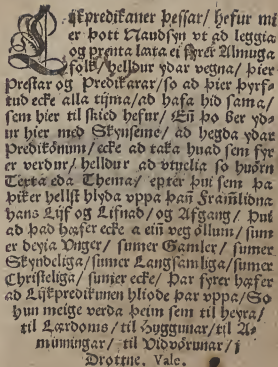 LIjkpredikaner þessar/ hefur mi
er þott Naudsyn vt ad leggia
og prenta læta ei fyrer Almuga
folk/ helldur ydar vegna/ þier
Prestar og Predikarar/ so ad þier þyrf-
tud ecke alla tijma/ ad hafa hid sama/
sem hier til skied hefur/ Eñ þo ber yd-
ur hier med Skynseme/ ad hegda ydar
Predikönum/ ecke ad taka huad sem fyr
er verdur/ helldur ad vtuelia so huörn
Texta eda Thema/ epter þui sem pa
þiker hellst hlyda vppa þañ Framlidna
hans Lijf og Lifnad/ og Afgang/ Þui
ad þad hæfer ecke a eiñ veg öllum/ sum
er deyia Vnger/ sumer Gamler/ sumer
Skyndeliga/ sumer Langsamliga/ sumer
Christeliga/ sumer ecke/ Þar fyrer hæfer
ad Lijkpredikunen hliode þar vppa/ So
hun meige verda þeim sem til heyra/
til Lærdoms/ til Huggunar/ til A-
minningar/ til Vidvörunar/ j
Drottne. Vale.